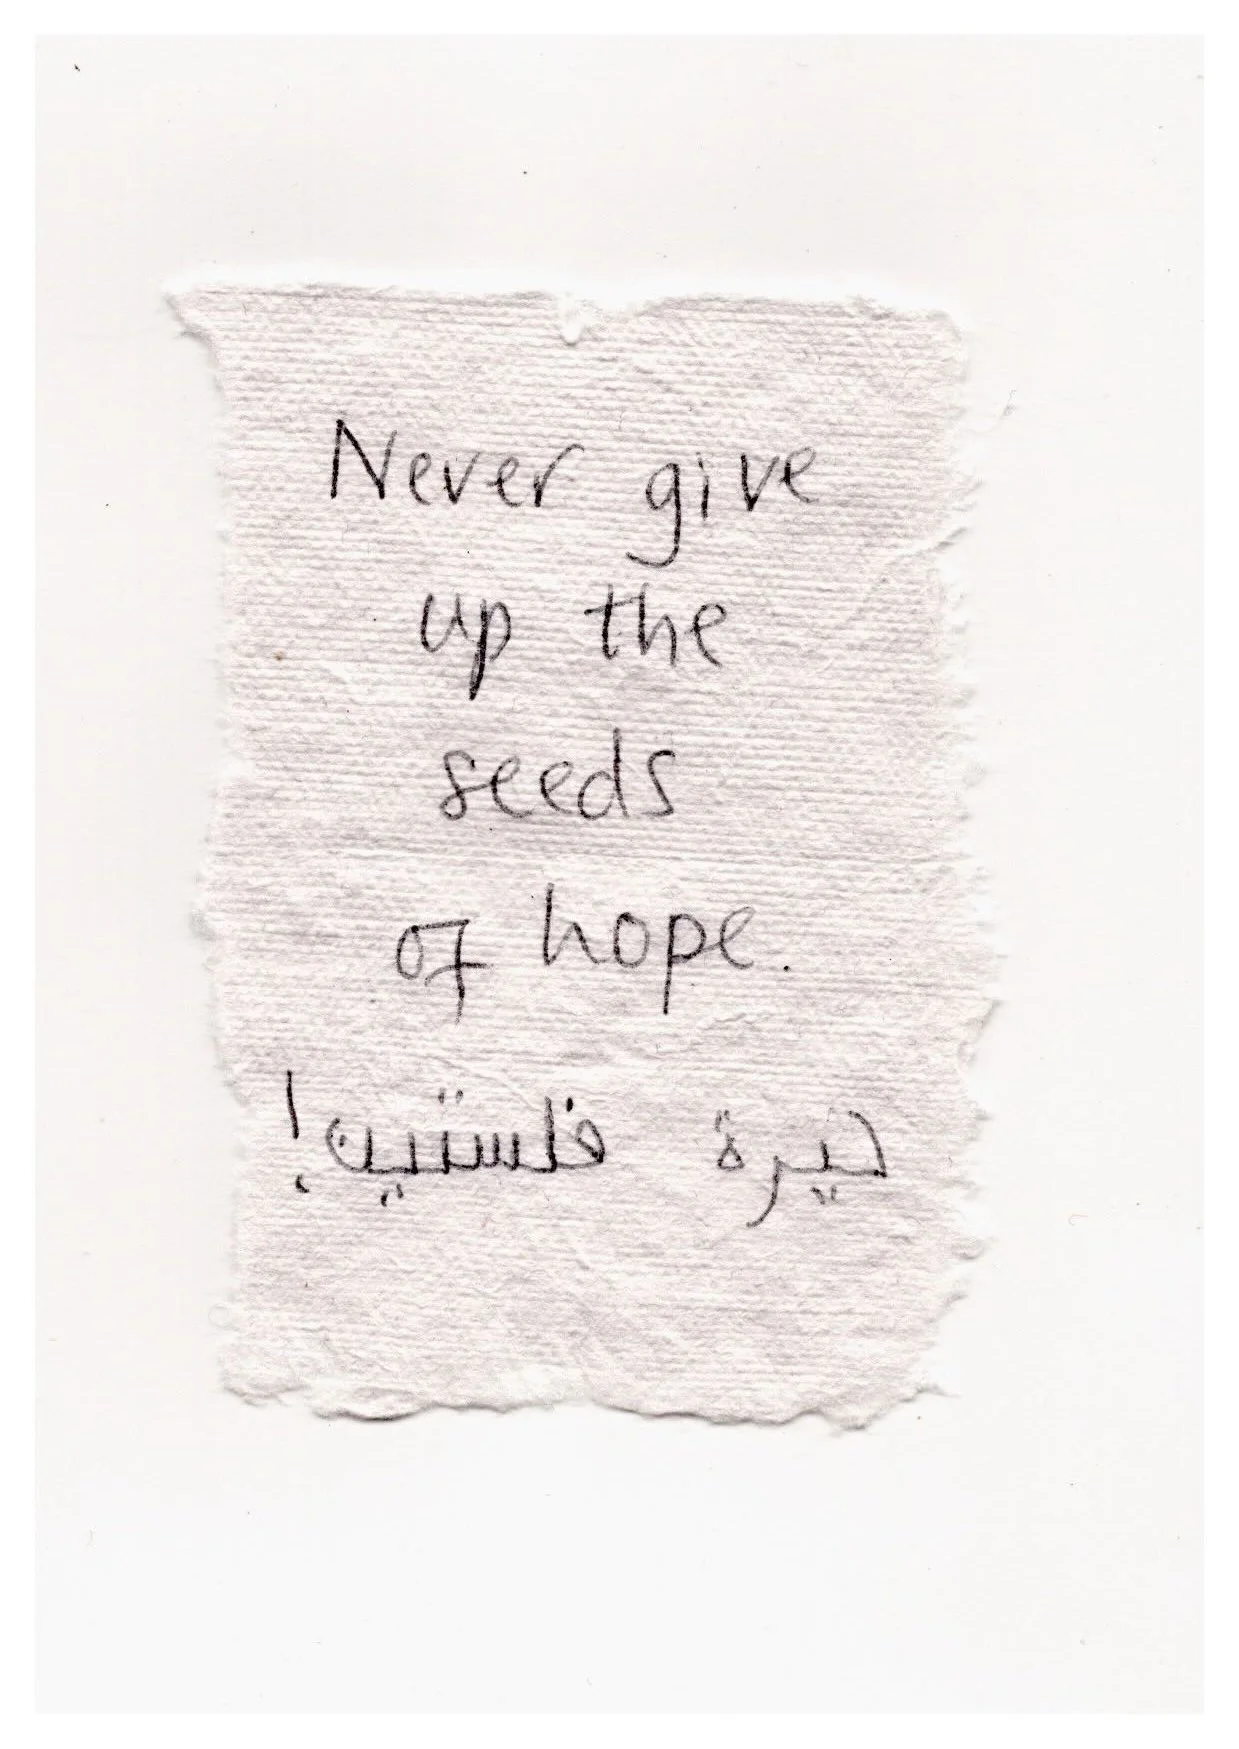 Never give
up the
seeds
of hope.
حيرة فلستين!